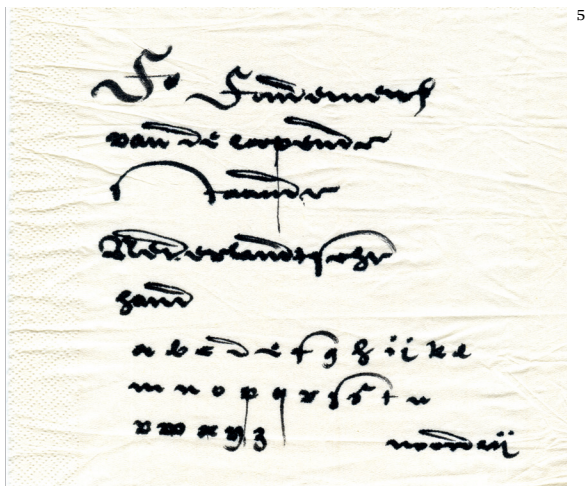 5
Fondement
van de loopende
staande
Nederlandtsche
hand
a b c d e f g h i j k l
m n o p q r ſ s t u
v w x y z
noordzij